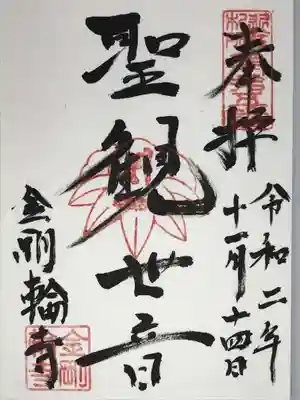 奉拝
令和二年
十一月十四日
聖観世音
金剛輪寺
金剛
輪寺